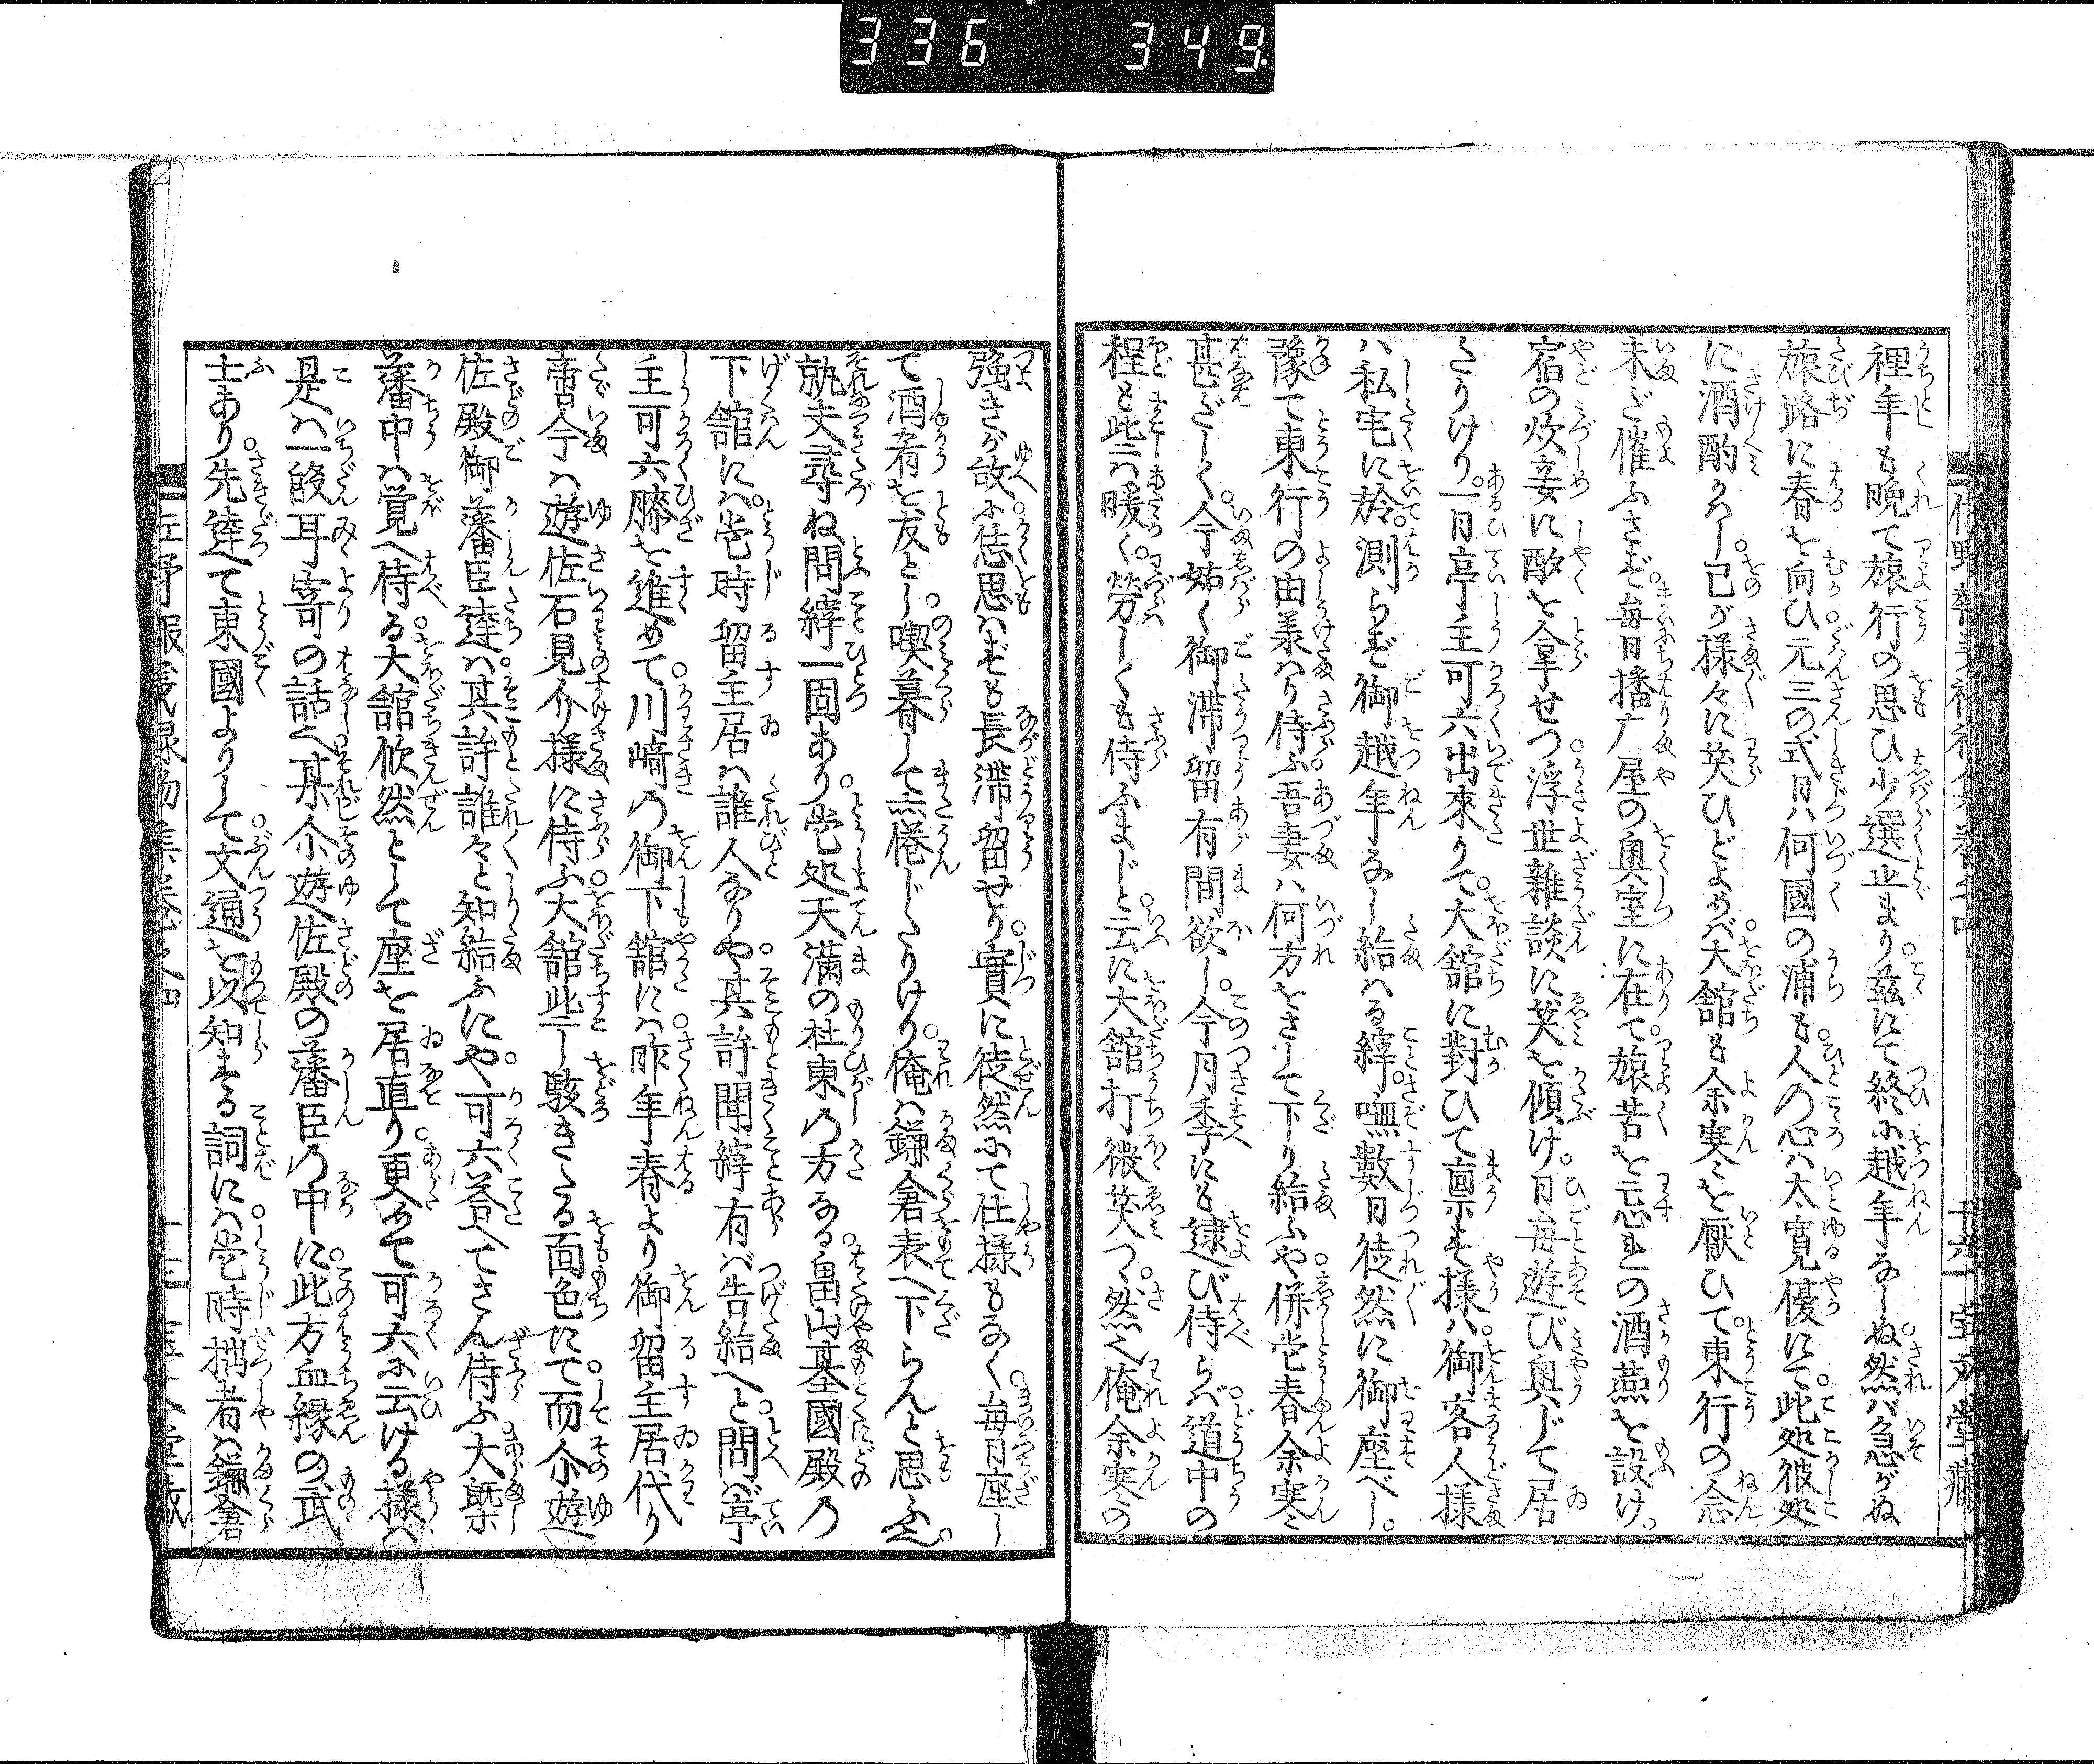 336 349
裡年も晩て旅行の思ひ少選止まり。茲にて終に越年なしぬ。然バ急がぬ
旅路に春を向ひ。元三の式日ハ何國の浦も。人の心ハ太寛優にて。此処彼処
に酒酌かハし。己が様々に笑ひどよめバ。大舘も余寒を厭ひて。東行の念
未ざ催ふさず。毎日播广屋の奥室に在て。旅苦を忘れの酒燕を設け。
宿の炊妾に酌を拿せつ。浮世雜談に笑を傾け。日毎遊び奥じて居
たりけり。一日亭主可六出來りて。大舘に對ひて亶すす様ハ。御客人様
ハ私宅に於。測らず御越年なし給ハる縡。嘸數日徒然に御座べし。
豫て東行の由美ハり侍ふ。吾妻ハ何方をさして下り給ふや。併当春余寒
甚ざしく。今姑く御滞留有間欲し。今月季にも逮び侍らバ。道中の
程も些ハ暖く。労しくも侍ふまじと。云に大舘打微笑つゝ。然之俺余寒の
強きが故に。恁思ハずも長滞留せり。實に徒然にて仕様もなく。毎日座し
て酒肴を友とし。喫暮して亦倦じたりけり。俺ハ鎌倉表へ下らんと思ふ之。
孰夫尋ね問縡一固あり。当処天満の社東の方なる。畠山基國殿の
下舘にハ。当時留主居ハ誰人なりや。其許聞縡有バ告給へと。問バ亭
主可六膝を進めて。川﨑の御下舘にハ。昨年春より御留主居代り
啻今ハ遊佐石見介様に侍ふ。大舘些し駭きたる面色にて。而尒遊
佐殿御藩臣達ハ。其許誰々と知給ふにや。可六答へてさん侍ふ。大槩
藩中ハ覚へ侍る。大舘佽然として座を居直り。更めて可六に云ける様ハ
是ハ一段耳寄の話之。某尒遊佐殿の藩臣の中に。此方血縁の武
士あり。先達て東國よりして。文通を以知する詞にハ。当時拙者ハ鎌倉